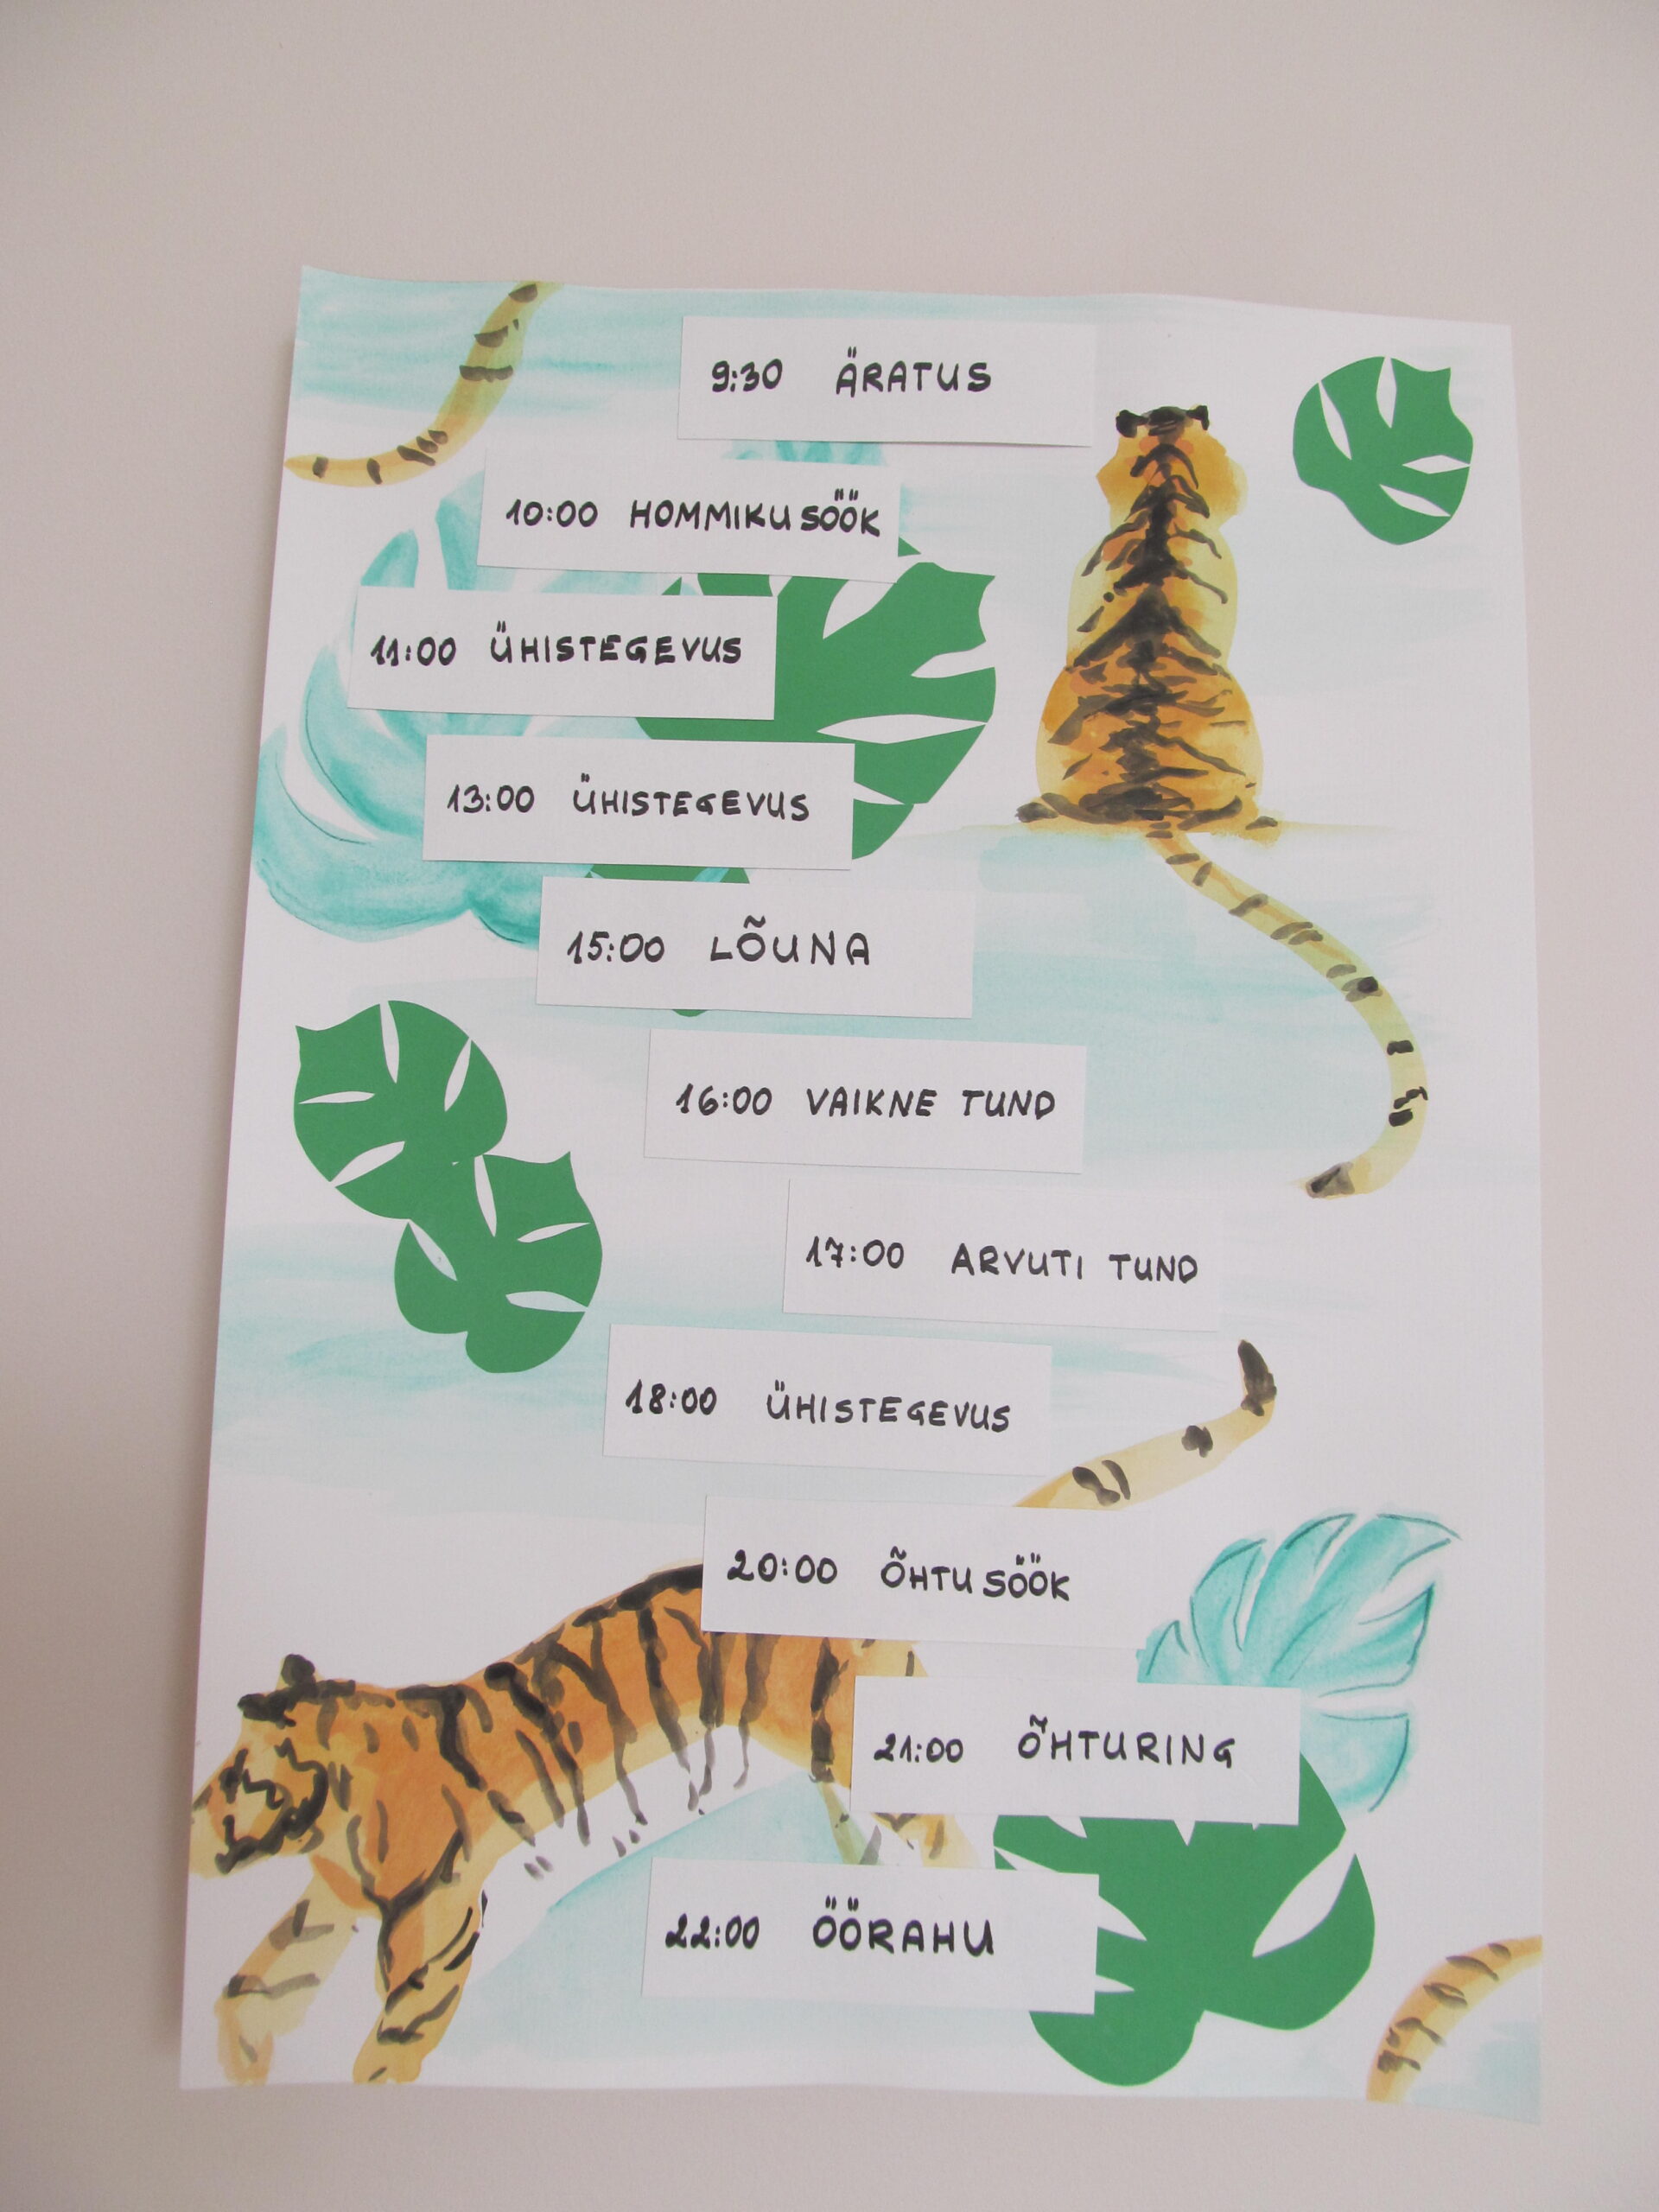 9:30 ÄRATUS
10:00 HOMMIKUSÖÖK
11:00 ÜHISTEGEVUS
13:00 ÜHISTEGEVUS
15:00 LÕUNA
16:00 VAIKNE TUND
17:00 ARVUTI TUND
18:00 ÜHISTEGEVUS
20:00 ÕHTUSÖÖK
21:00 ÕHTURING
22:00 ÖÖRAHU